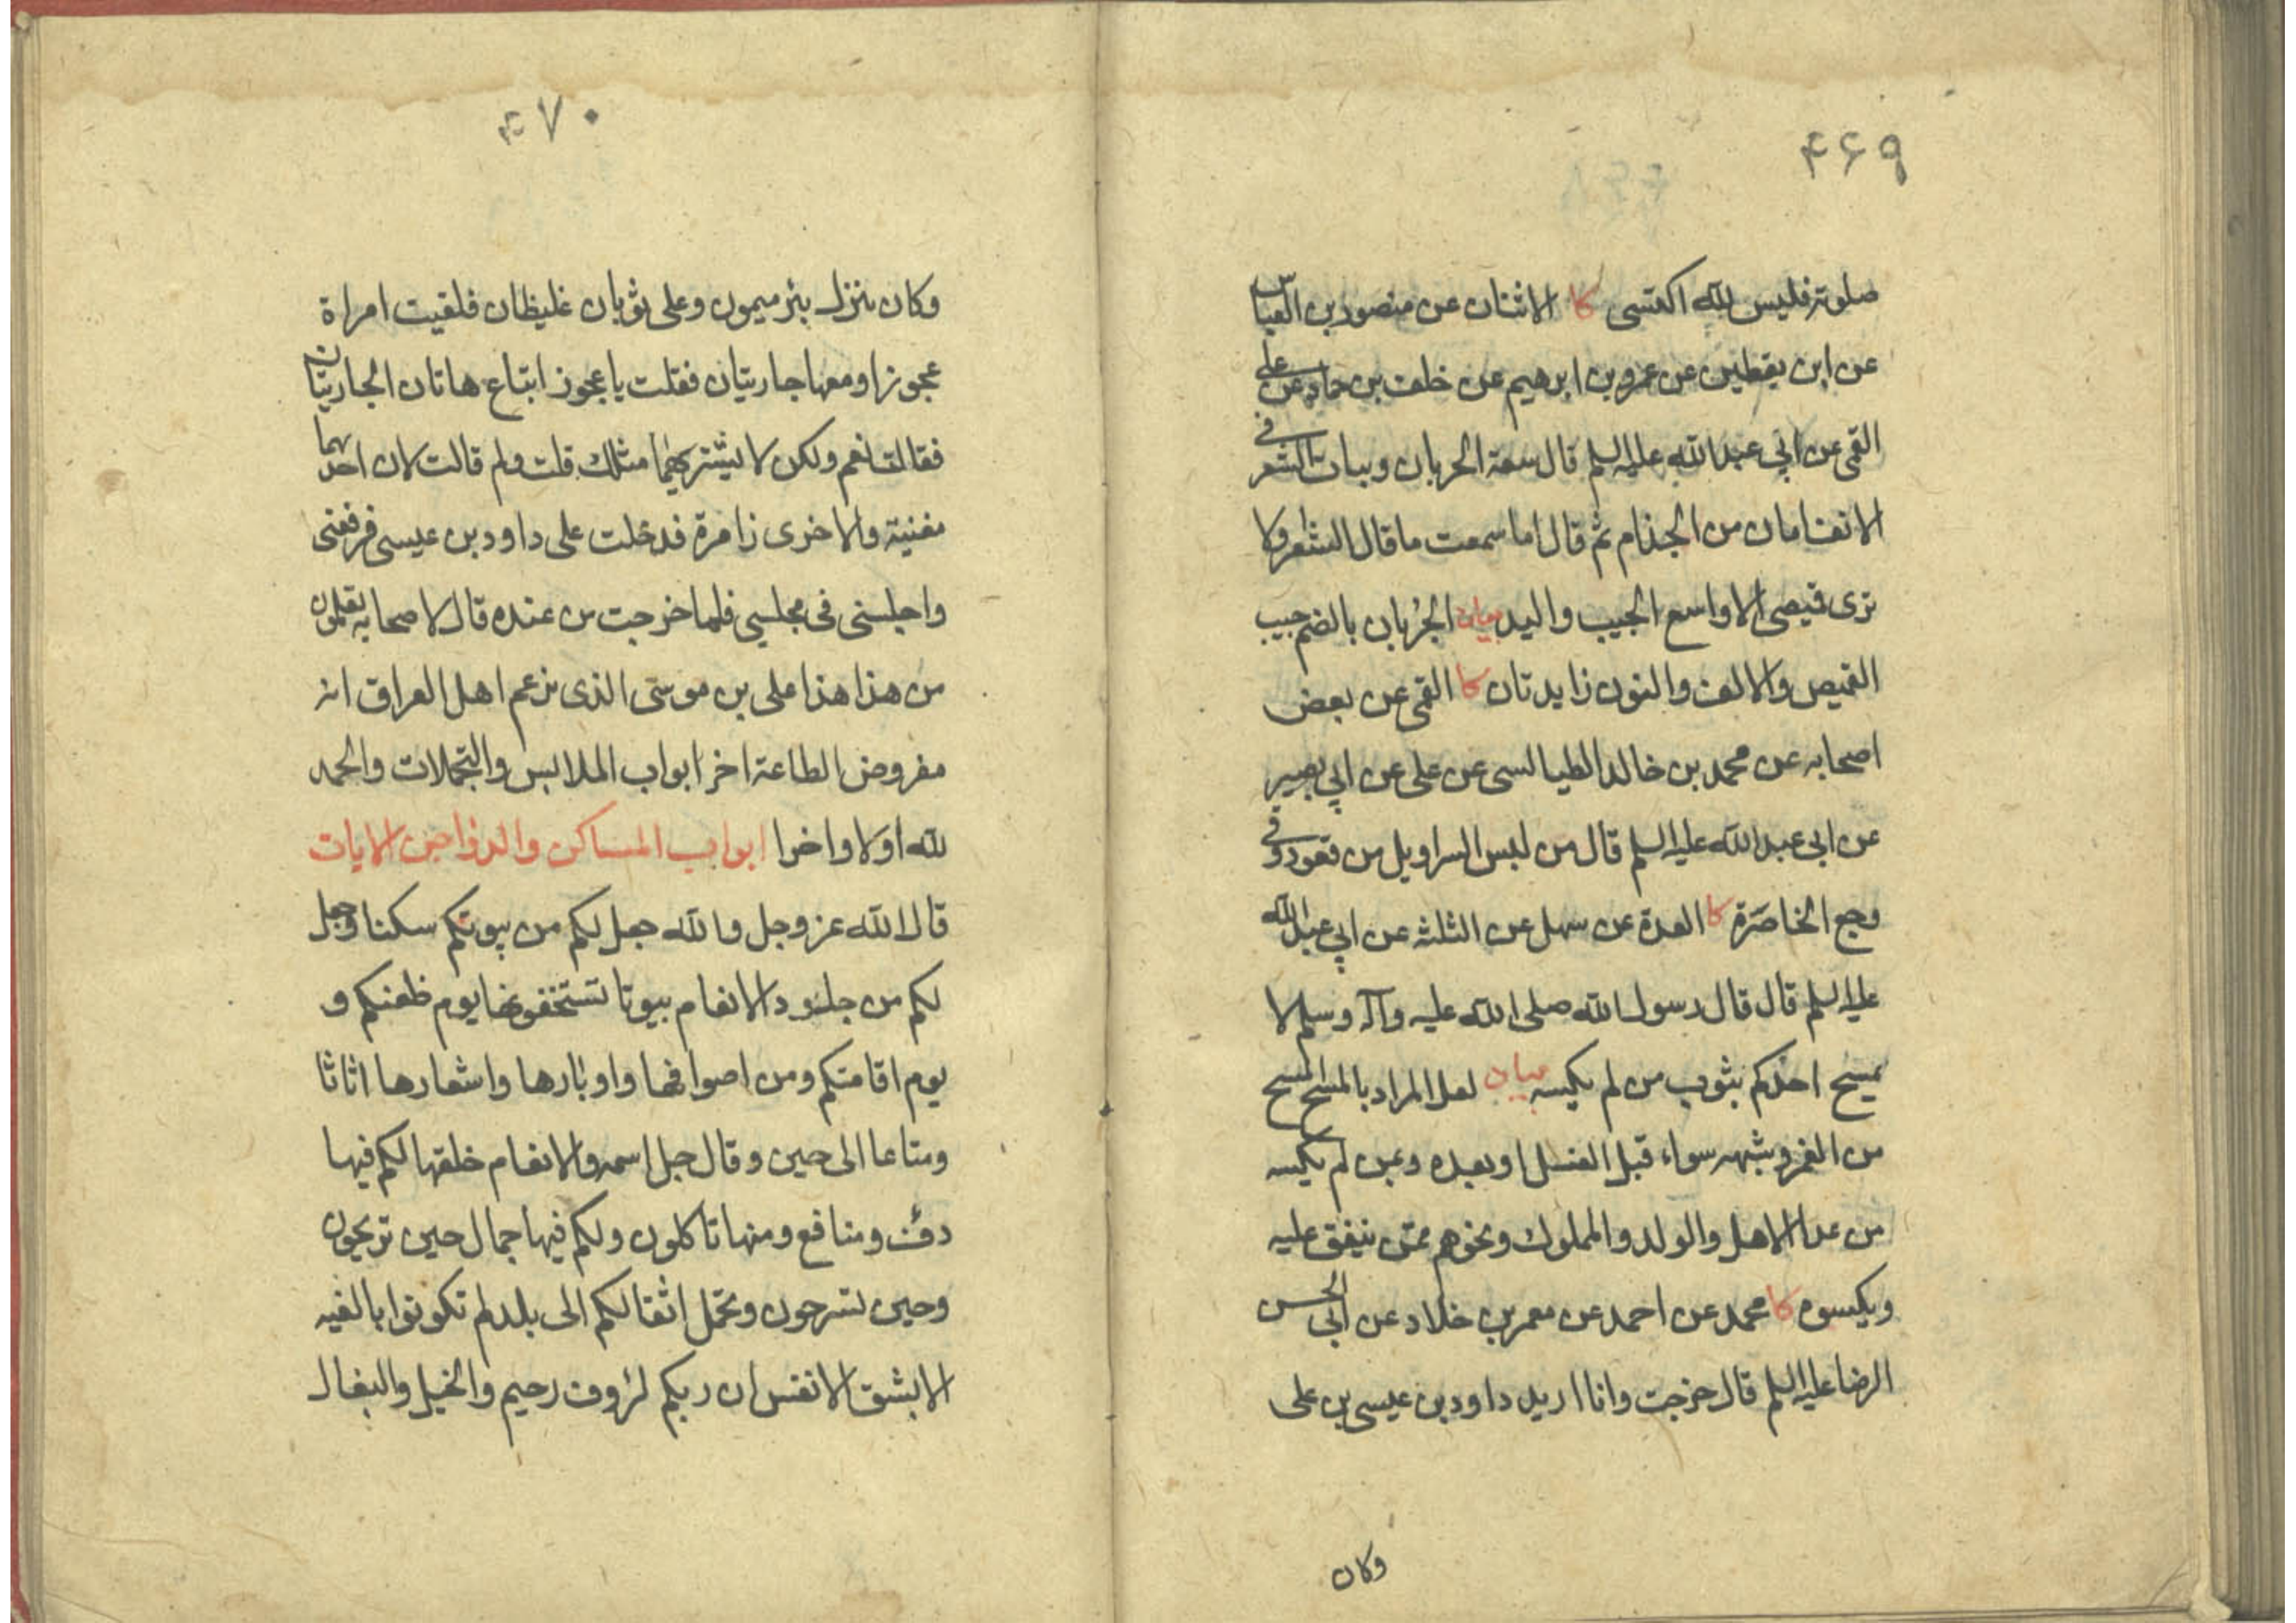 ۴۶۹
صلوته فليس لله اكتسى كا الاثنان عن منصور بن العباس
عن ابن يقطين عن عمرو بن ابرهيم عن خلف بن حماد عن على
القمى عن ابي عبد الله عليه السلم قال سعة الجربان ونبات الشعر فى
الانف امان من الجذام ثم قال اما سمعت ما قال الشاعر ولا
ترى قميصى الا واسع الجيب واليد بيان الجُربان بالضم جيب
القميص والالف والنون زايدتان كا القمى عن بعض
اصحابه عن محمد بن خالد الطيالسى عن على عن ابي بصير
عن ابى عبد الله عليه السلم قال من لبس السراويل من قعود وقى
وجع الخاصرة كا العدة عن سهل عن الثلثه عن ابي عبد الله
عليه السلم قال قال رسول الله صلى الله عليه وآله وسلم لا
يمسح احدكم بثوب من لم يكسه بيان لعل المراد بالمسح المسح
من الغمر وشبهه سواء قبل الغسل او بعده وبمن لم يكسه
من عدا الاهل والولد والمملوك ونحوهم ممن ينفق عليه
ويكسوه كا محمد عن احمد عن معمر بن خلاد عن ابي الحسن
الرضا عليه السلم قال خرجت وانا اريد داود بن عيسى بن على
وكان
۴۷۰
وكان ينزل بئر ميمون وعلى ثوبان غليظان فلقيت امراة
عجوزا ومعها جاريتان فقلت يا عجوز ابتاع هاتان الجاريتان
فقالت نعم ولكن لا يشتريهما مثلك قلت ولم قالت لان احديهما
مغنية والاخرى زامرة فدخلت على داود بن عيسى فرفعنى
واجلسنى فى مجلسي فلما خرجت من عنده قال لاصحابه تعلمون
من هذا هذا على بن موسى الذى يزعم اهل العراق انه
مفروض الطاعة اخر ابواب الملابس والتجملات والحمد
لله اولا واخرا ابواب المساكن والدواجن الايات
قال الله عز وجل والله جعل لكم من بيوتكم سكنا وجعل
لكم من جلود الانعام بيوتا تستخفونها يوم ظعنكم و
يوم اقامتكم ومن اصوافها واوبارها واشعارها اثاثا
ومتاعا الى حين وقال جل اسمه والانعام خلقها لكم فيها
دفء ومنافع ومنها تاكلون ولكم فيها جمال حين تريحون
وحين تسرحون وتحمل اثقالكم الى بلد لم تكونوا بالغيه
الا بشق الانفس ان ربكم لرؤوف رحيم والخيل والبغال